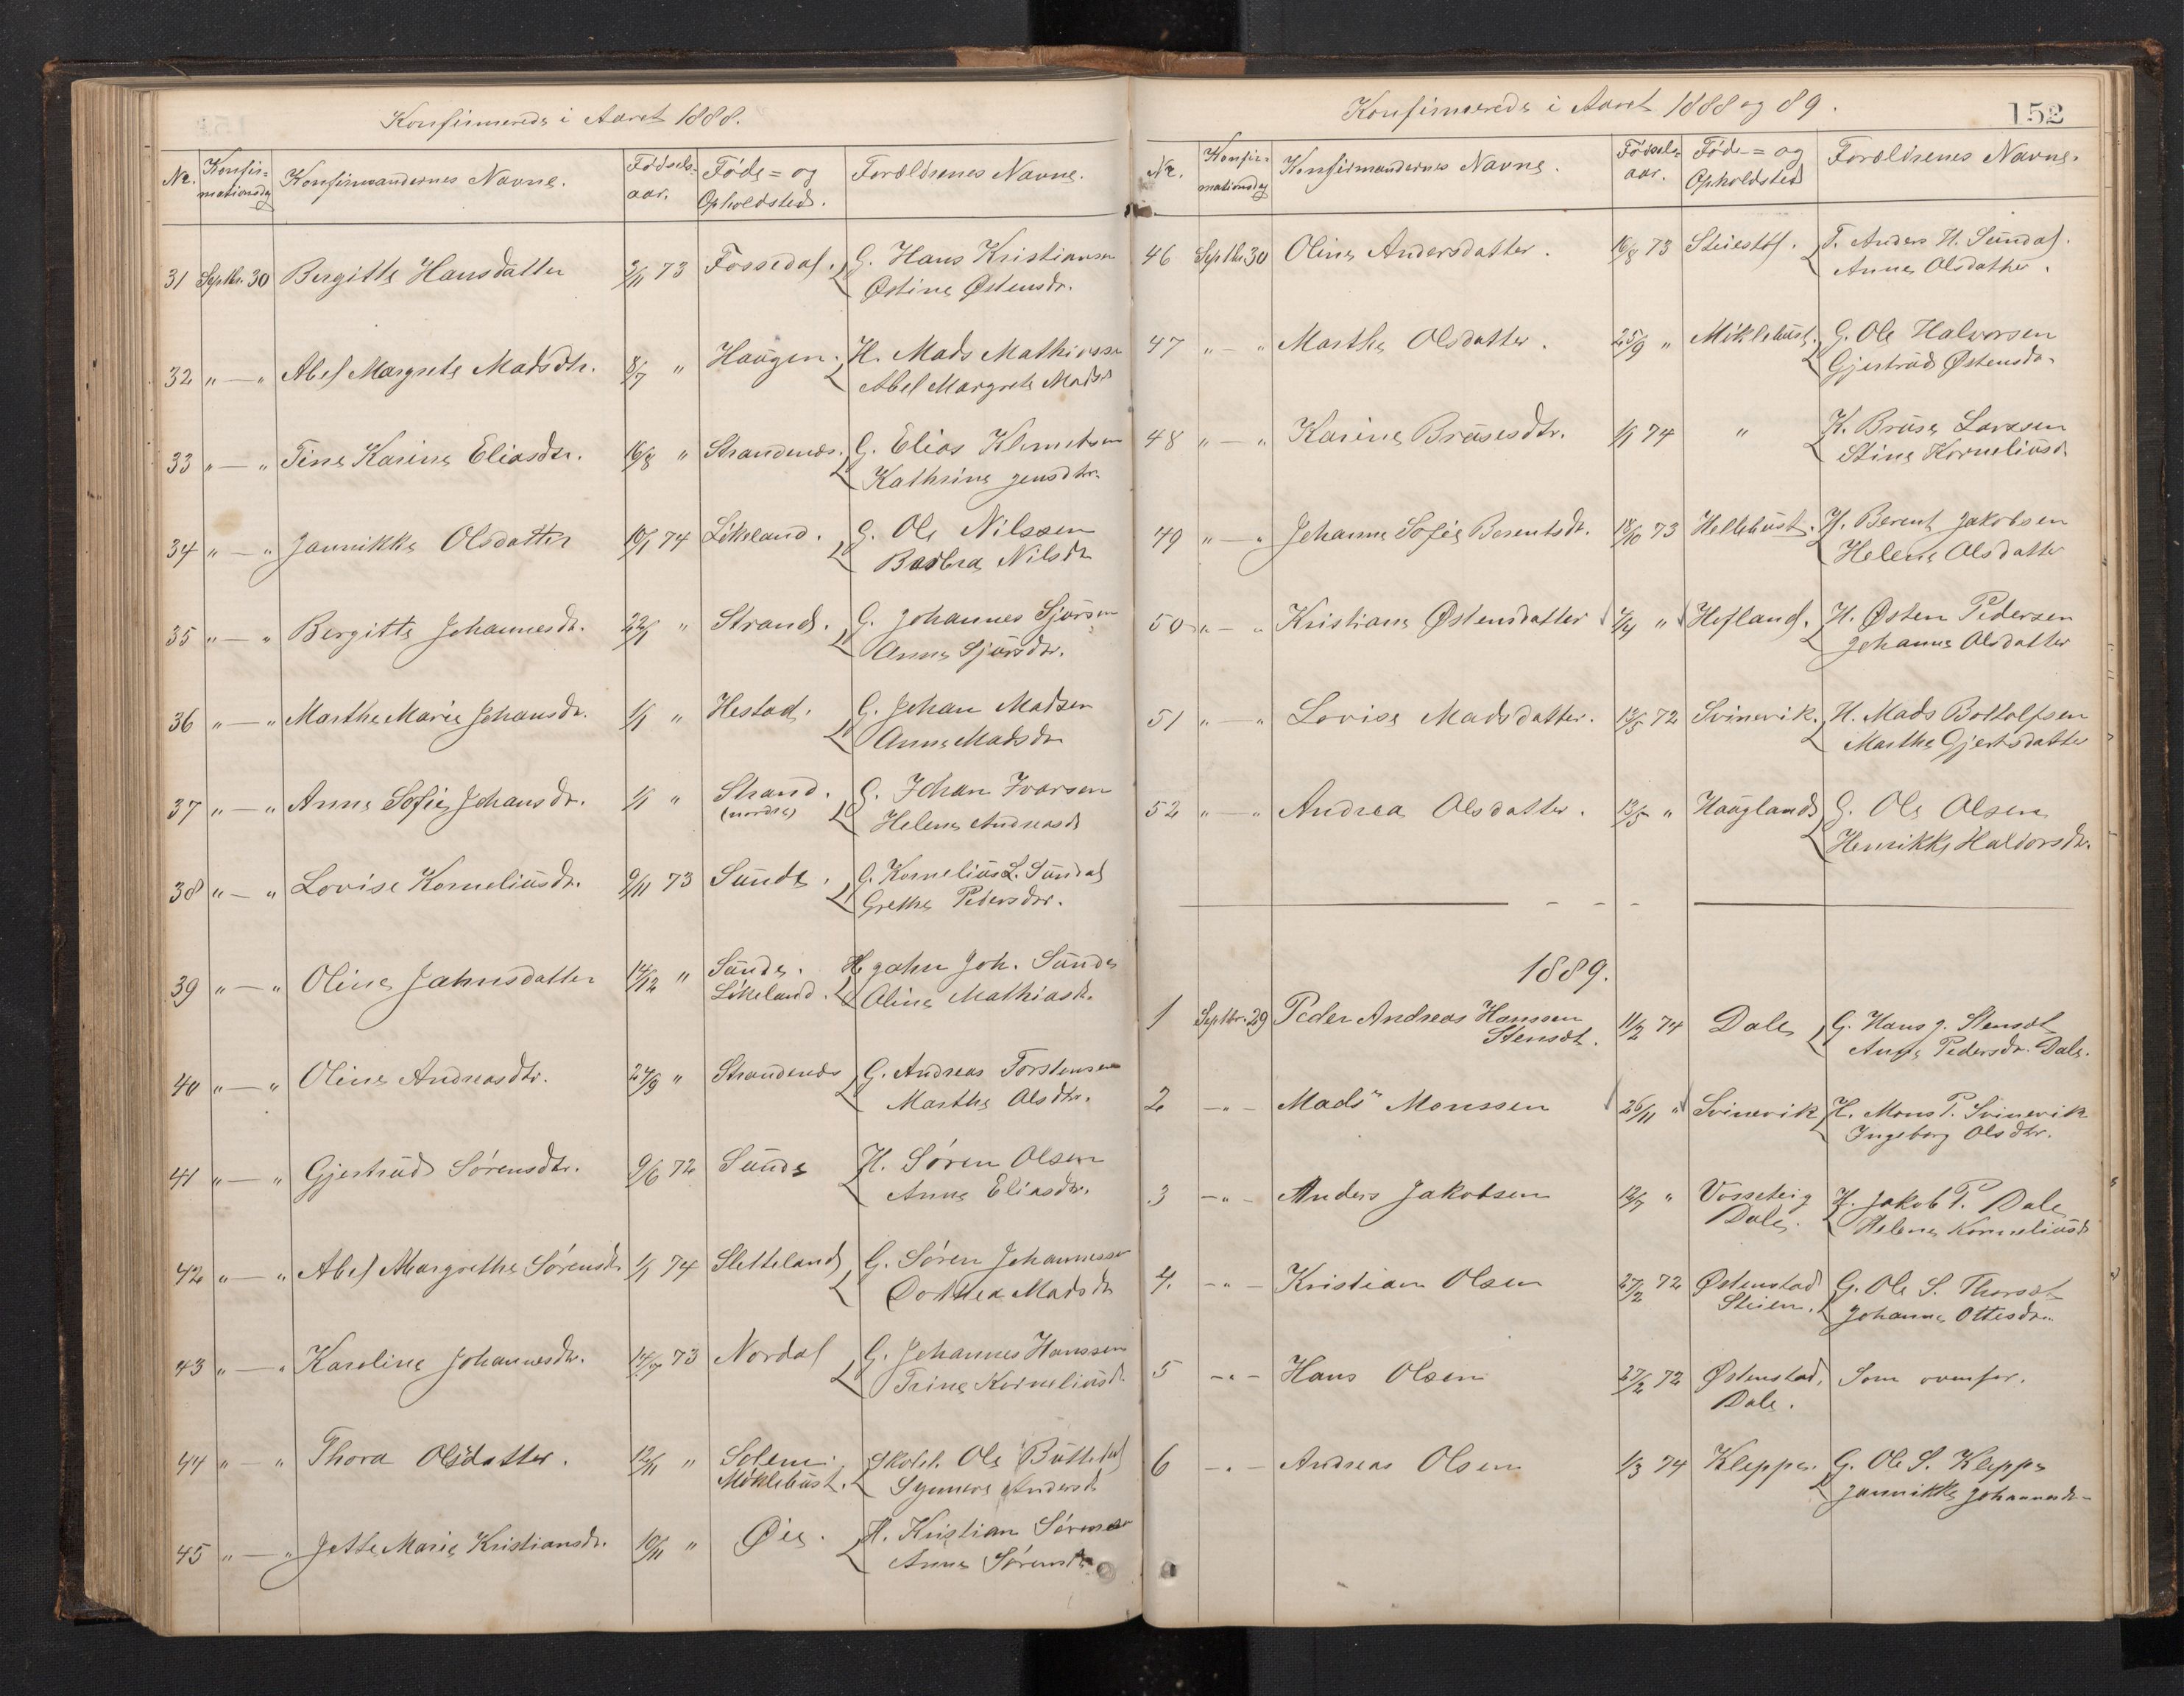 Konfirmerede i Aaret 1888.
Nr. Konfirmationsdag Konfirmandernes Navne. Fødselsaar. Føde= og Opholdsted. Forældrenes Navne.
31 Septbr. 30 Bergitte Hansdatter 2/11 73 Fossedal. G. Hans Kristiansen
Østine Østensdr.
32 " — " Abel Margrete Madsdtr. 8/7 " Haugen. H. Mads Mathiassen
Abel Margrete Madsd
33 " — " Tine Karine Eliasdtr. 16/8 " Strandenæs. G. Elias Klemetsen
Kathrine Jensdtr.
34 " — " Jannikke Olsdatter 10/1 74 Løkeland. G. Ole Nilssen
Barbra Nilsdr
35 " — " Bergitte Johannesdr. 22/1 " Strand. G. Johannes Sjursen
Anne Sjursdtr.
36 " — " Marthe Marie Johansdr. 1/1 " Hestad. G. Johan Madsen
Anne Madsdr
37 " — " Anne Sofie Johansdr. 1/1 " Strand. G. Johan Ivarsen
(nordre) Helene Andreasd
38 " — " Lovise Korneliusdr. 9/11 73 Sunde. G. Kornelius L. Sundal
Grethe Pedersdtr.
39 " — " Oline Jahnsdatter 14/12 " Sunde. H Jahn Joh. Sunde
Løkeland. Oline Mathiasdr.
40 " — " Oline Andreasdtr. 24/9 " Strandenæs G. Andreas Torstensen
Marthe Olsdtr.
41 " — " Gjertrud Sørensdtr. 9/6 72 Sunde H. Søren Olsen
Anne Eliasdtr.
42 " — " Abel Margrethe Sørensdr 1/1 74 Sletteland G. Søren Johannessen
Dorthea Madsdr
43 " — " Karoline Johannesdtr. 14/7 73 Nordal G. Johannes Hanssen
Trine Korneliusd.
44 " — " Thora Olsdatter. 12/11 " Solem. Skolel. Ole
Møklebust. Synneve Andersd
45 " — " Jette Marie Kristiansdr. 10/11 " Øie. H. Kristian Sørensen
Anne Sørensdr
Konfirmerede i Aaret 1888 og 89.
152
Nr. Konfirmationsdag Konfirmandernes Navne. Fødselsaar. Føde= og Opholdsted Forældrenes Navne.
46 Septbr. 30 Oline Andersdatter. 16/8 73 T. Anders H. Sundal.
Anne Olsdatter.
47 " — " Marthe Olsdatter. 25/9 " Møklebust. G. Ole Halvorsen
Gjertrud Østensdr
48 " — " Karine Brusesdtr. 1/1 74 " K. Bruse Larssen
Stine Korneliusd.
49 " — " Johanne Sofie Berentsdr. 18/10 73 Hellebust. H. Berent Jakobsen
Helene Olsdatter
50 " — " Kristiane Østensdatter 2/4 " Hefland. H. Østen Pedersen
Johanne Olsdatter
51 " — " Lovise Madsdatter. 12/5 72 Svinevik. H. Mads Bottolfsen
Marthe Gjertsdatter
52 " — " Andrea Olsdatter. 13/5 " Haugland G. Ole Olsen
Henrikke Haldorsdr.
1889.
1 Septbr. 29 Peder Andreas Hanssen 11/2 74 Dale G. Hans J. Stensæt
Stensæt. Anne Pedersdr. Dale.
2 — " — Mads Monssen 26/11 " Svinevik H. Mons P. Svinevik
Ingeborg Olsdtr.
3 — " — Anders Jakobsen 12/7 " Vosseteig H. Jakob P. Dale
Dale. Helene Korneliusd
4. — " — Kristian Olsen 27/2 72 Østenstad G. Ole S. Thorsæt
Steien. Johanne Ottesdr.
5 — " — Hans Olsen 27/2 72 Østenstad. Som ovenfor.
Dale.
6 — " — Andreas Olsen 1/3 74 Kleppe. G. Ole S. Kleppe
Jannikke Johannesdr